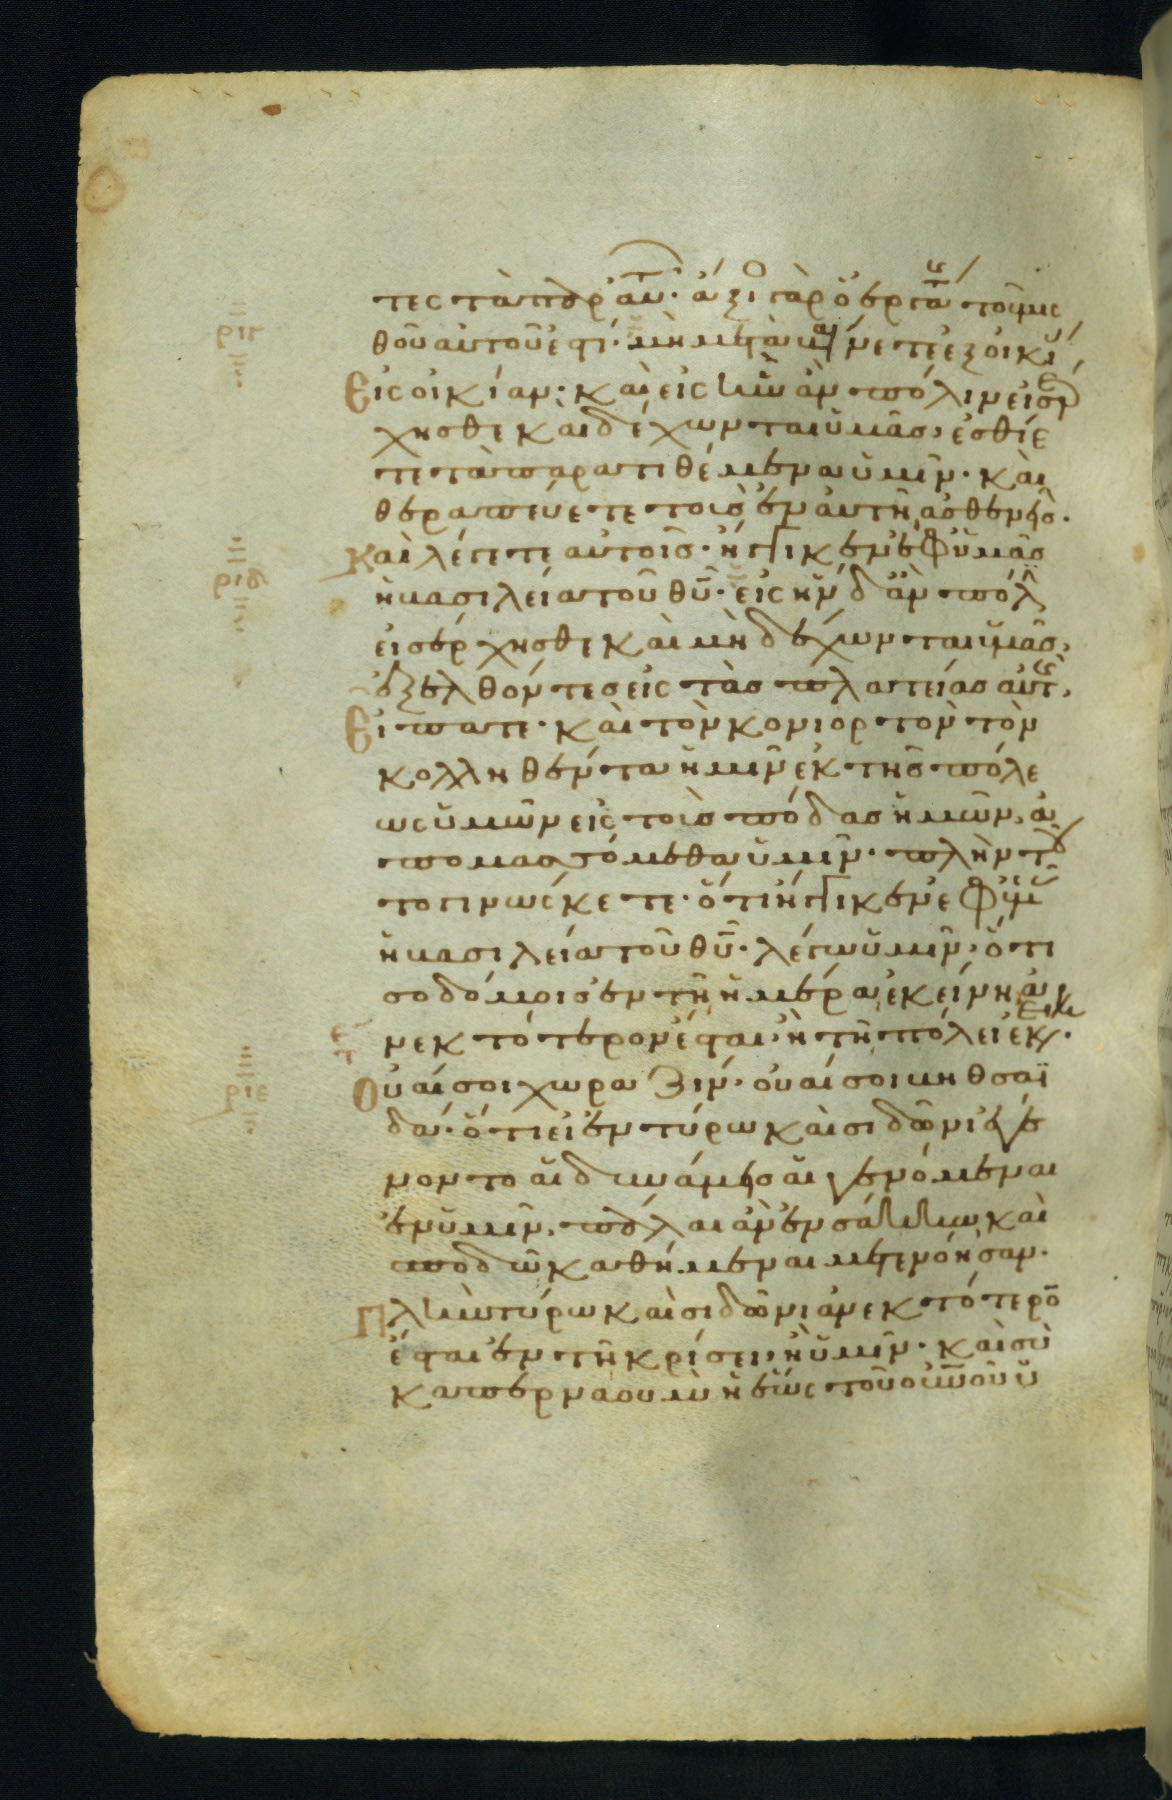 τες τὰ παρ' αὐτ· ἄξιο γὰρ ὁ ἐργάτ τοῦ μισ
ριγ
θοῦ αὐτοῦ ἐστι· μὴ μεταβαίνετε ἐξ οἰκί
Εἰς οἰκίαν· καὶ εἰς ἣν ἂν πόλιν εἰσέρ
χησθε καὶ δέχωνται ὑμᾶς, ἐσθίε
τε τὰ παρατιθέμενα ὑμῖν· καὶ
θεραπεύετε τοὺς ἐν αὐτῇ ἀσθενεῖς·
Καὶ λέγετε αὐτοῖς· ἤγγικεν ἐφ ὑμᾶς
ριδ
ἡ βασιλεία τοῦ θῦ· εἰς ἣν δ ἂν πόλ
εἰσέρχησθε καὶ μὴ δέχωνται ὑμᾶς,
ἐξελθόντες εἰς τὰς πλατείας αὐτ,
Εἴπατε· καὶ τὸν κονιορτὸν τὸν
κολληθέντα ἡμῖν ἐκ τῆς πόλε
ως ὑμῶν εἰς τοὺς πόδας ἡμῶν, ἀ
πομασσόμεθα ὑμῖν· πλὴν τοῦ
το γινώσκετε· ὅτι ἤγγικεν ἐφ ὑμ
ἡ βασιλεία τοῦ θῦ· λέγω ὑμῖν, ὅτι
σοδόμοις ἐν τῇ ἡμέρα ἐκείνη ἀ
νεκτότερον ἔσται, ἢ τῇ πόλει ἐκείνη·
ριε
Οὐαί σοι χωραζίν· οὐαί σοι βηθσαϊ
δά· ὅτι εἰ ἐν τύρω καὶ σιδῶνι ἐγέ
νοντο αἱ δυνάμεις αἱ γενόμεναι
ἐν ὑμῖν, πάλαι ἂν ἐν σάκκω καὶ
σποδῶ καθήμεναι μετενόησαν·
Πλὴν τύρω καὶ σιδῶνι ἀνεκτότερο
ἔσται ἐν τῇ κρίσει, ἢ ὑμῖν· καὶ σὺ
καπερναοὺμ ἡ ἕως τοῦ οὐνοῦ ὑ